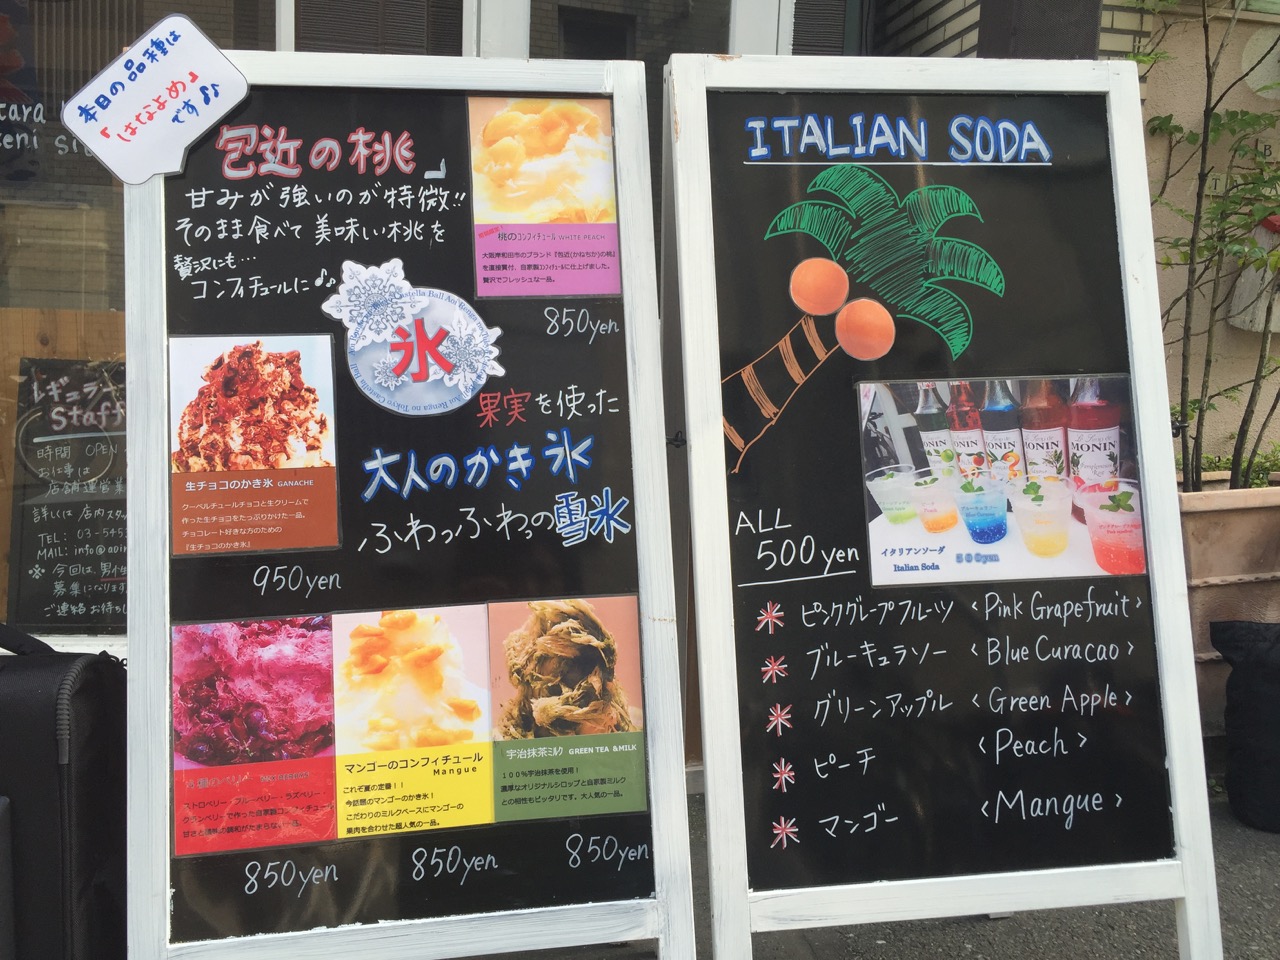 本日の品種は
「はなよめ」
です♪♪
包近の桃」
甘みが強いのが特徴!!
そのまま食べて美味しい桃を
贅沢にも…
コンフィチュールに♪♪
桃のコンフィチュール WHITE PEACH
大阪岸和田市のブランド『包近(かねちか)の桃』
を直接買付、自家製コンフィチュールに仕上げました。
贅沢でフレッシュな一品。
850yen
氷
Castella Ball Aoi Renga no
果実を使った
大人のかき氷
ふわっふわっの雪氷
生チョコのかき氷 GANACHE
クーベルチュールチョコと生クリームで
作った生チョコをたっぷりかけた一品。
チョコレート好きな方のための
『生チョコのかき氷』
950yen
ストロベリー・ブルーベリー・ラズベリー・
クランベリーで作った自家製コンフィチュール
甘さと酸味の調和がたまらない一品。
850yen
マンゴーのコンフィチュール
Mangue
これぞ夏の定番!!
今話題のマンゴーのかき氷!
こだわりのミルクベースにマンゴーの
果肉を合わせた超人気の一品。
850yen
宇治抹茶ミルク GREEN TEA &MILK
100%宇治抹茶を使用!
濃厚なオリジナルシロップと自家製ミルク
との相性もピッタリです。大人気の一品。
850yen
ITALIAN SODA
MONIN
MONIN
MONIN
MONIN
MONIN
イタリアンソーダ
Italian Soda
500yen
ALL
500yen
ピンクグレープフルーツ <Pink Grapefruit>
ブルーキュラソー <Blue Curacao>
グリーンアップル <Green Apple>
ピーチ <Peach>
マンゴー <Mangue>
レギュラー
Staff
時間 OPEN
お仕事は
店舗運営業
詳しくは 店内スタッ
TEL: 03-545
MAIL: info@aoir
※今回は、男性
募集になります
ご連絡お待ちし